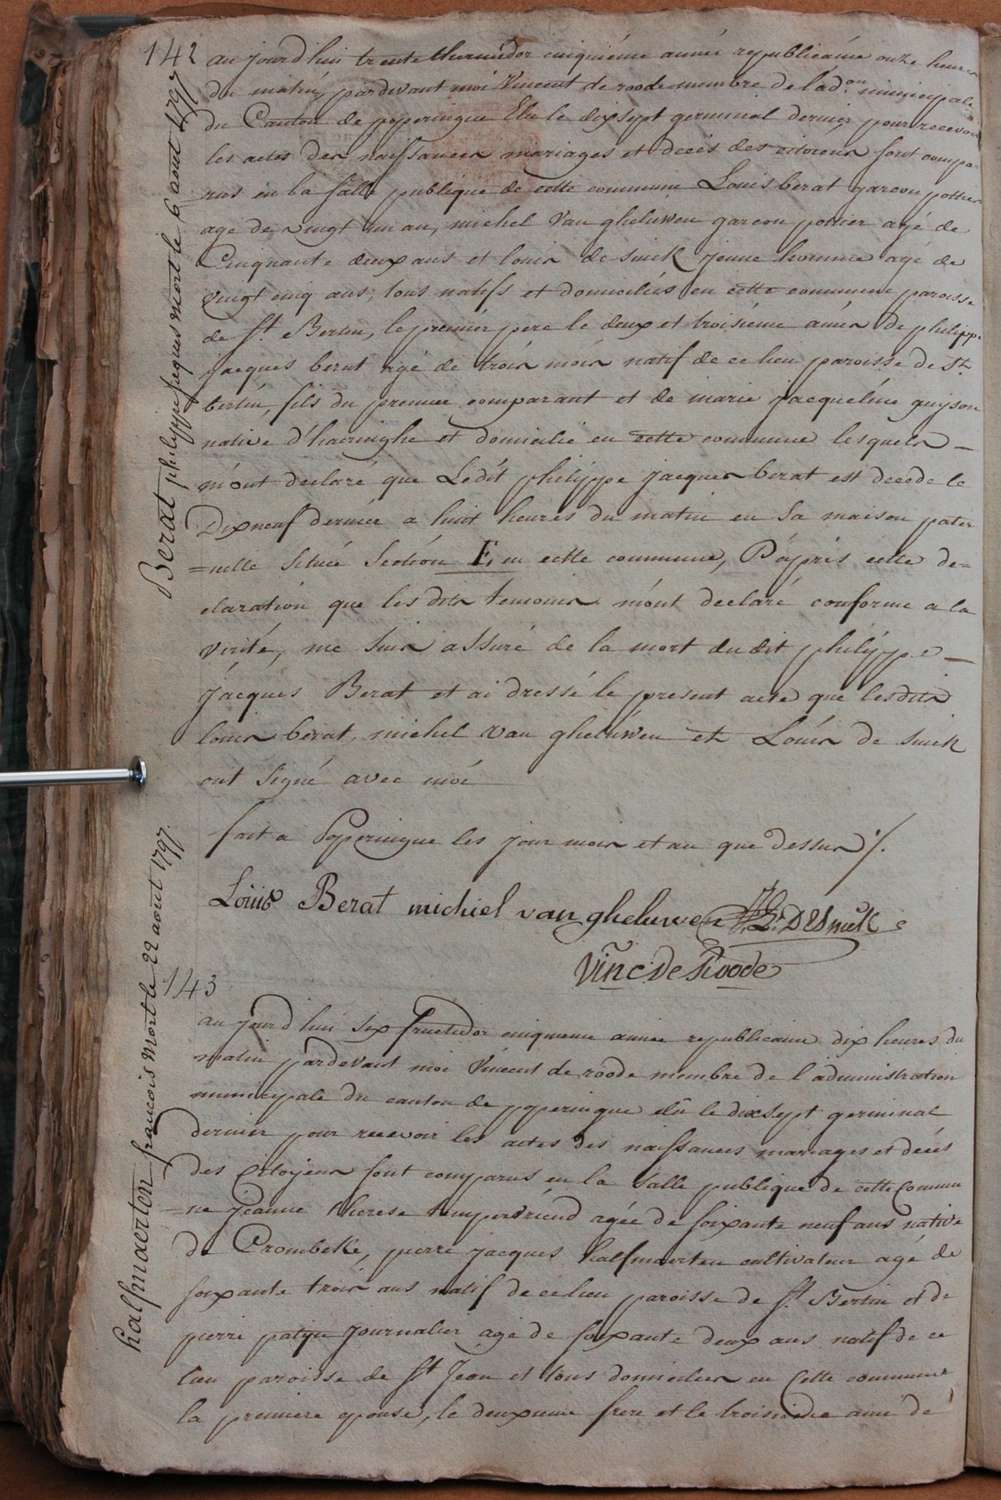 142
au jourd'hui trente thermidor cinquiéme année republicaine onze heures
du matin, pardevant moi Vincent de roode membre de l'ad.on municipale
du Canton de poperingue Elu le dixsept germinal dernier pour recevoir
les actes des naissances mariages et décès des citoiens sont compa-
-rus en la salle publique de cette commune Louis berat garcon pottier
agé de vingt un an, michel Van gheluwen garcon pottier agé de
Cinquante deux ans et louis de smek jeune homme agé de
vingt cinq ans, tous natifs et domiciliés en cette commune paroisse
de St. Bertin, le premier pere le deux et troisiéme amis de philippe
jacques berat agé de trois mois natif de ce lieu paroisse de St.
bertin, fils du premier comparant et de marie jacqueline guyson
native d'haringhe et domicilié en cette commune lesquels
m'ont declaré que Ledit philippe jacques berat est decedé le
Dixneuf dernier a huit heures du matin en sa maison pater
=nelle située Section E, en cette commune, D'apris cette de=
claration que lesdits temoins m'ont declaré conforme a la
verité, me suis assuré de la mort dudit philippe
jacques Berat et ai dressé le present acte que lesdits
louis berat, michel van gheluwen et Louis de smek
ont signé avec moi
fait a Poperingue les jour mois et an que dessus %.
Louis Berat michiel van gheluwe DESmeK
Vinc: De Roode
Berat philippe jaques mort le 6 aout 1797
143
au jourd'hui six fructidor cinquieme année republicaine dix heures du
matin pardevant moi Vincent de roode membre de l'administration
municipale du canton de poperingue elû le dixsept germinal
dernier pour recevoir les actes des naissances mariages et décès
des Citoyens sont comparus en la salle publique de cette Commu
=ne jeanne therese agée de soixante neuf ans native
de Crombeke, pierre jacques kalfmaerten cultivateur agé de
soixante trois ans natif de ce lieu paroisse de St. Bertin et de
pierre journalier agé de soixante deux ans natif de ce
lieu paroisse de St Jean et tous domiciliés en cette commune
la premiere epouse, le deuxieme frere et le troisieme ami de
Kalfmaerten francois Mort le 22 aout 1797.